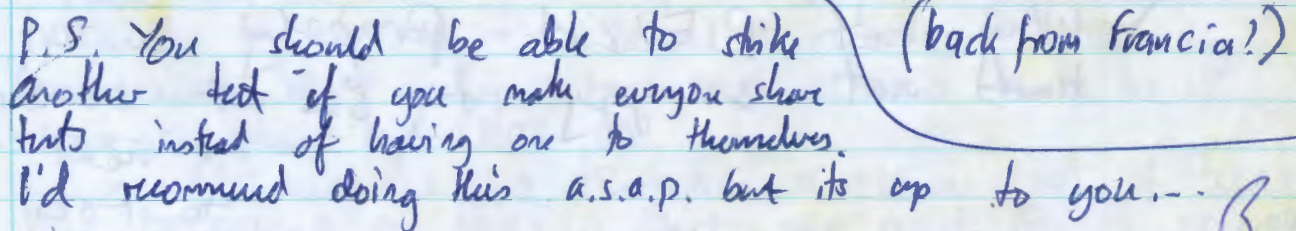 P.S. You should be able to strike
another tent if you make everyone share
tents instead of having one to themselves.
I'd recommend doing this a.s.a.p. but its up to you...
(back from Francia?)